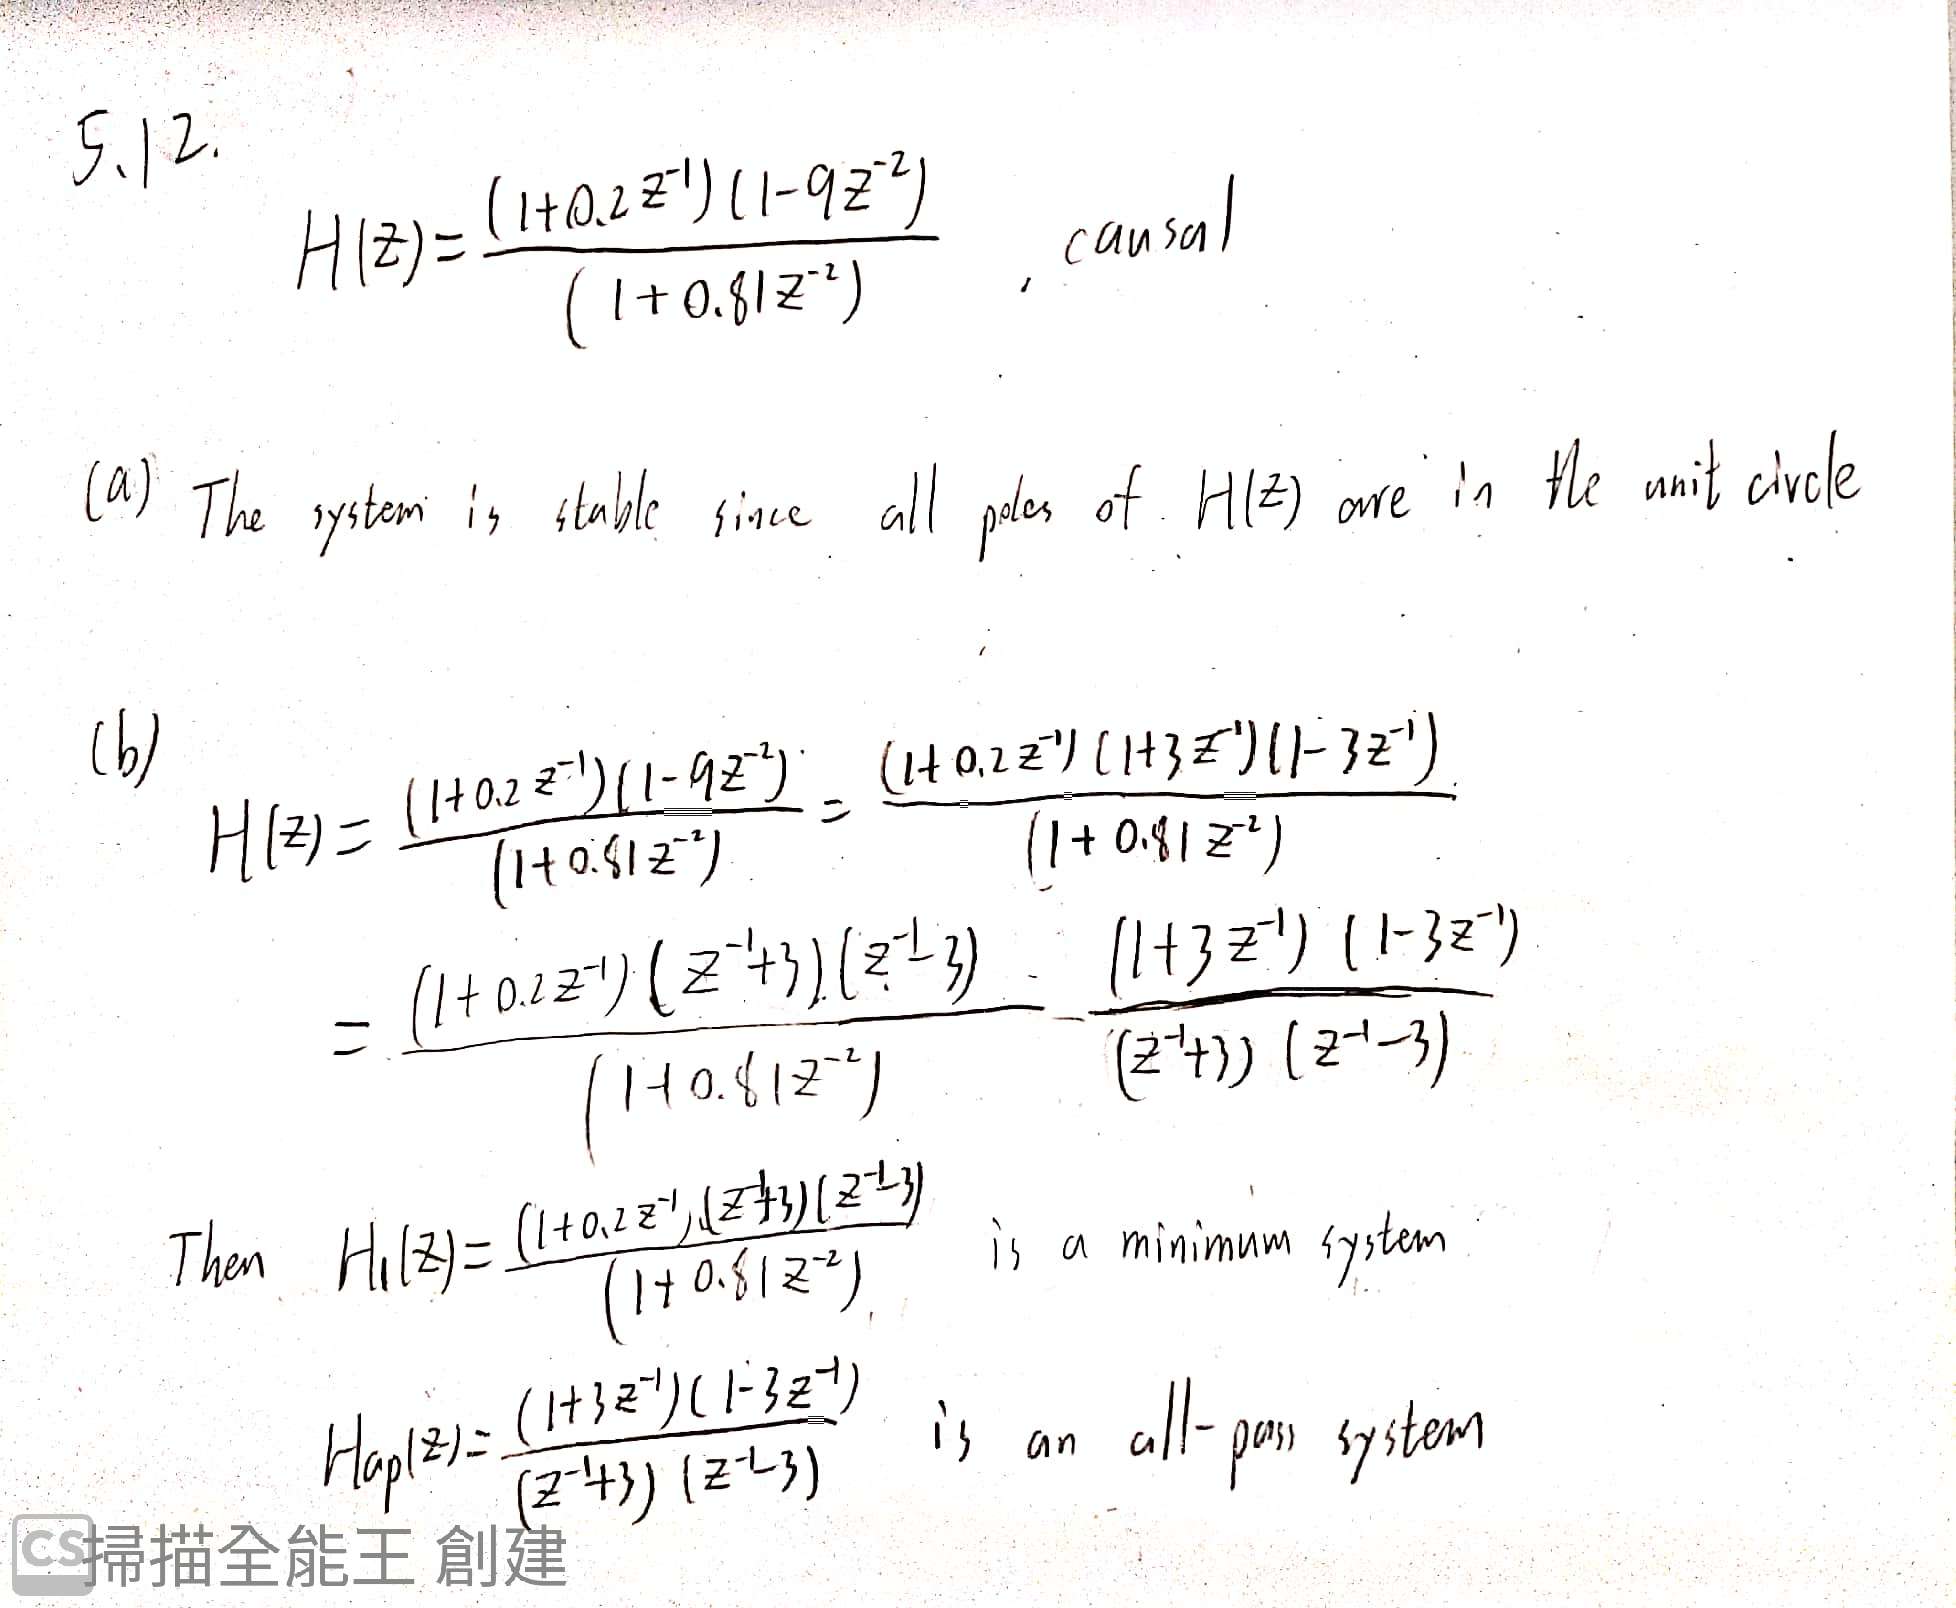 5.12.
H(z) = (1+0.2z⁻¹)(1-9z⁻²) / (1+0.81z⁻²) , causal
(a) The system is stable since all poles of H(z) are in the unit circle
(b)
H(z) = (1+0.2z⁻¹)(1-9z⁻²) / (1+0.81z⁻²) = (1+0.2z⁻¹)(1+3z⁻¹)(1-3z⁻¹) / (1+0.81z⁻²)
= (1+0.2z⁻¹)(z⁻¹+3)(z⁻¹-3) / (1+0.81z⁻²) · (1+3z⁻¹)(1-3z⁻¹) / (z⁻¹+3)(z⁻¹-3)
Then H₁(z) = (1+0.2z⁻¹)(z⁻¹+3)(z⁻¹-3) / (1+0.81z⁻²) is a minimum system
Hap(z) = (1+3z⁻¹)(1-3z⁻¹) / (z⁻¹+3)(z⁻¹-3) is an all-pass system
CS掃描全能王 創建